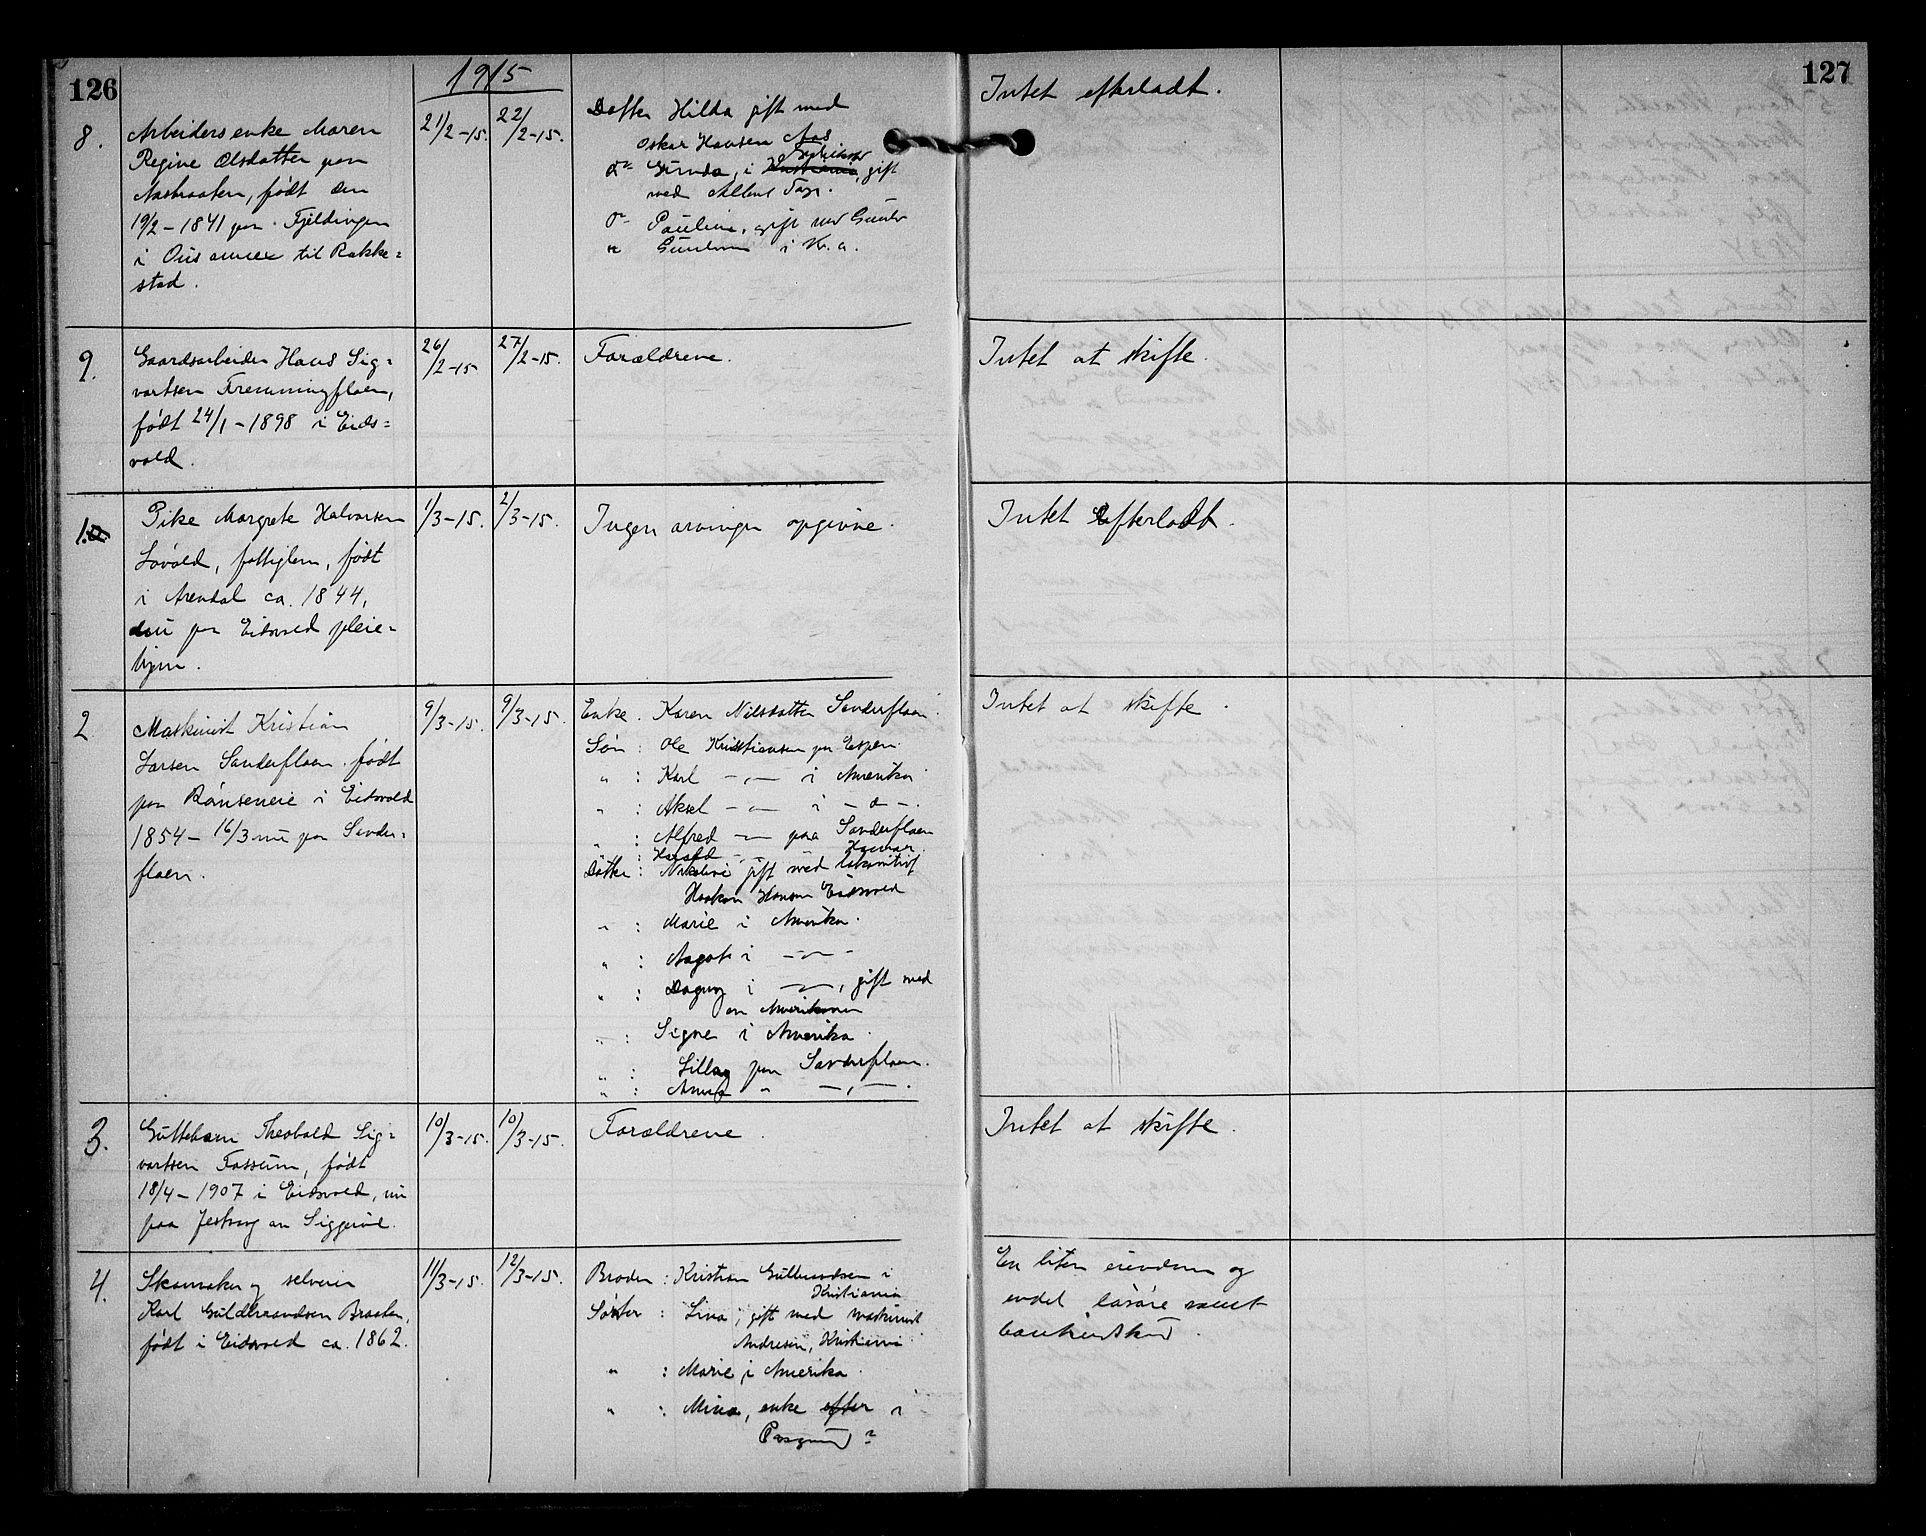 126
1915
127
8.
Arbeiders enke Maren
Regine Olsdatter paa
født den
19/2 – 1841 paa Fjeldingen
i Ous annex til Rakke=
stad.
21/2–15.
22/2–15.
Datter Hilda gift med
Oskar Hansen Aas
do Gunda, i gift
med
do Pauline, gift med
i Kr.a.
Intet efterladt.
9.
Gaardsarbeider Hans Sig=
vartsen Fremmingfloen,
født 24/1 – 1898 i Eids=
vold.
26/2–15
27/2–15.
Forældrene.
Intet at skifte.
1.
Pike Margrete Halvorsen
Løvold, fattiglem, født
i Arendal ca. 1844,
nu paa Eidsvold pleie=
hjem.
1/3–15.
2/3–15.
Ingen arvinger opgivne.
Intet efterladt.
2
Maskinist Kristian
Larsen Sanderfloen. født
paa Rånseneie i Eidsvold
1854 – 16/3 nu paa Sander=
floen.
9/3–15.
9/3–15.
Enke. Karen Nilsdatter Sanderfloen.
Søn : Ole Kristiansen paa Espen.
" : Karl –"– i Amerika.
" : Aksel –"– i – d –.
" : Alfred –"– paa Sanderfloen
" : Harald –"– Hamar.
Datter : Nikoline gift med lokomotivf
Haakon Hansen Eidsvold
" : Marie i Amerika.
" : Aagot i –"–
" : Dagny i –"–, gift med
en Amerikaner
" : Signe i Amerika.
" : Lilly paa Sanderfloen.
" : " –"–.
Intet at skifte.
3.
Guttebarn Theobald Sig=
vartsen Fossum, født
18/4 – 1907 i Eidsvold, nu
paa
10/3–15.
10/3–15.
Forældrene.
Intet at skifte.
4.
Skomaker og selveier
Karl Guldbrandsen Braaten,
født i Eidsvold ca. 1862.
11/3–15.
12/3–15.
Broder : Kristian Gulbrandsen i
Kristiania
Søster : Lina, gift med maskinist
Andresen, Kristiania
" : Marie, i Amerika.
" : Mina, enke efter i
Porsgrund ?
En liten eiendom og
endel løsøre samt
bankindskud.